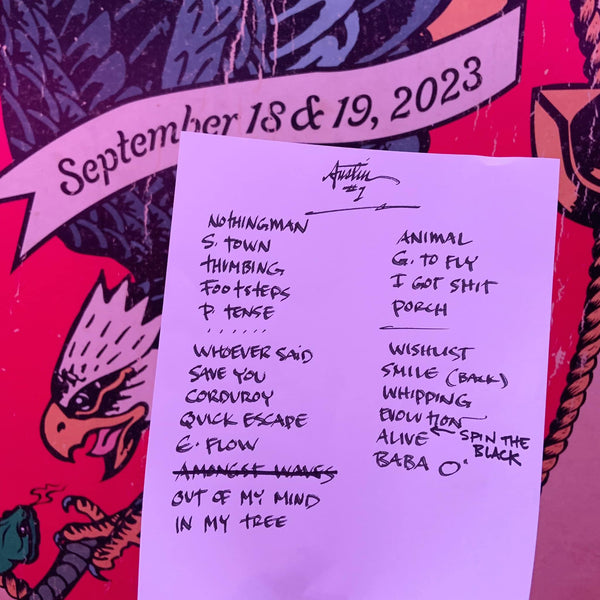 September 18 & 19, 2023
Austin
#1
NOTHINGMAN
S. TOWN
THUMBING
FOOTSTEPS
P. TENSE
WHOEVER SAID
SAVE YOU
CORDUROY
QUICK ESCAPE
E. FLOW
AMONGST WAVES
OUT OF MY MIND
IN MY TREE
ANIMAL
G. TO FLY
I GOT SHIT
PORCH
WISHLIST
SMILE (BACK)
WHIPPING
EVOLUTION
ALIVE
SPIN THE
BLACK
BABA O'